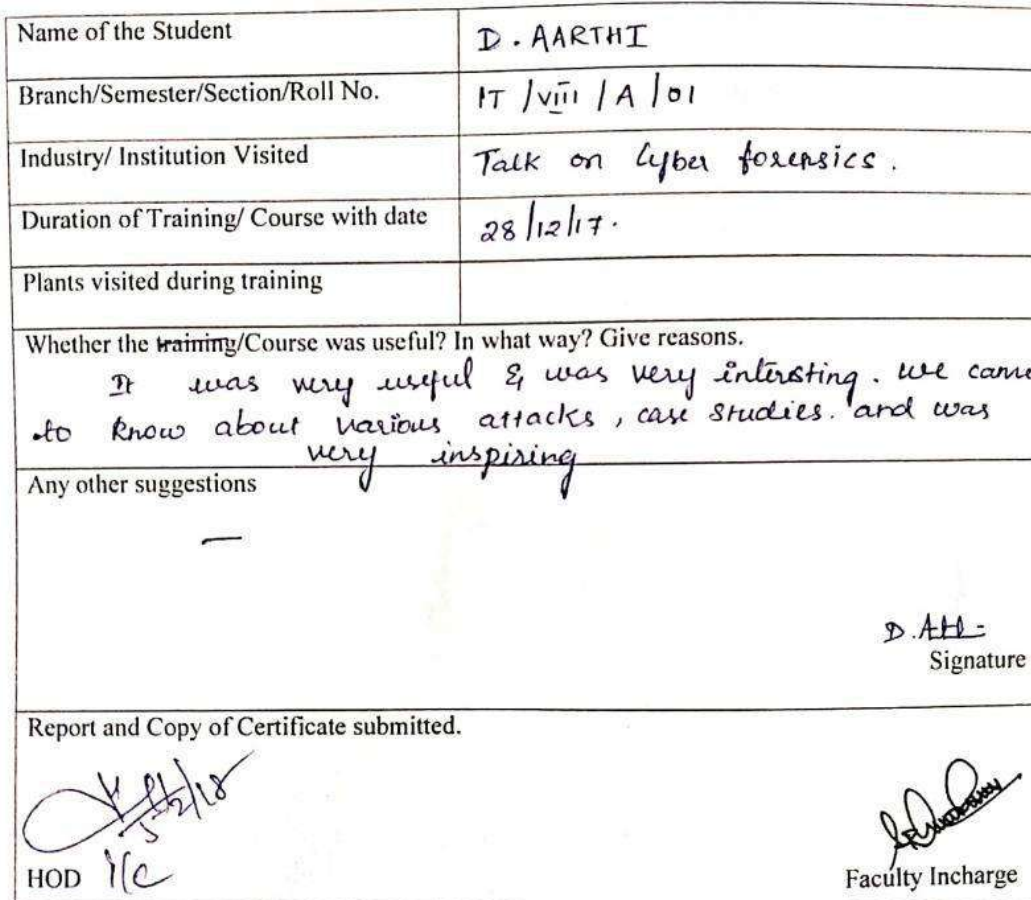 Name of the Student D. AARTHI
Branch/Semester/Section/Roll No. IT / VIII / A / 01
Industry/ Institution Visited Talk on Cyber forensics.
Duration of Training/ Course with date 28/12/17.
Plants visited during training
Whether the training/Course was useful? In what way? Give reasons.
It was very useful & was very intersting. we came
to know about various attacks, case studies. and was
very inspiring
Any other suggestions
—
D.
Signature
Report and Copy of Certificate submitted.
5/2/18
HOD I/C
Faculty Incharge